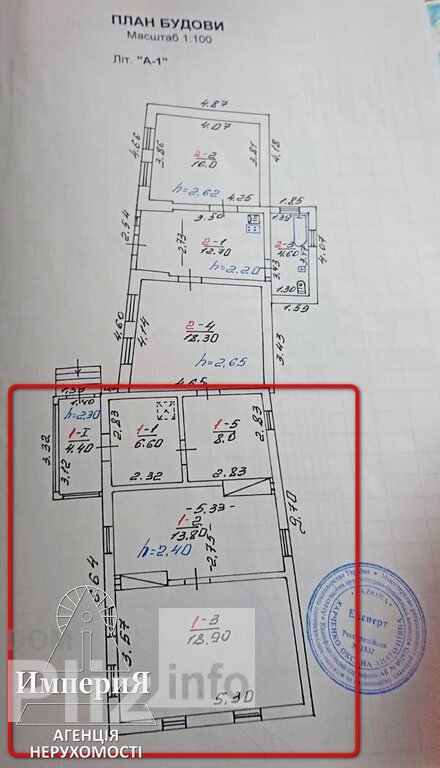 ПЛАН БУДОВИ
Масштаб 1:100
Літ. "А-1"
4.87
4.07
4.66
3.86
2-2
16.0
3.81
4.18
h=2.62
4.25
1.85
3.50
1.39
2.54
2.73
2-1
12.70
h=2.20
3.43
2-3
4.60
3.47
4.07
1.30
1.59
4.60
4.14
2-4
18.30
h=2.65
3.43
4.65
1.40
h=2.30
3.32
3.12
1-I
4.40
2.83
1-1
6.60
2.32
1-5
8.0
2.83
2.83
5.33
1-2
13.80
h=2.40
2.75
9.70
3.57
1-3
18.90
5.30
Експерт
ИмпериЯ
info
АГЕНЦІЯ
НЕРУХОМОСТІ